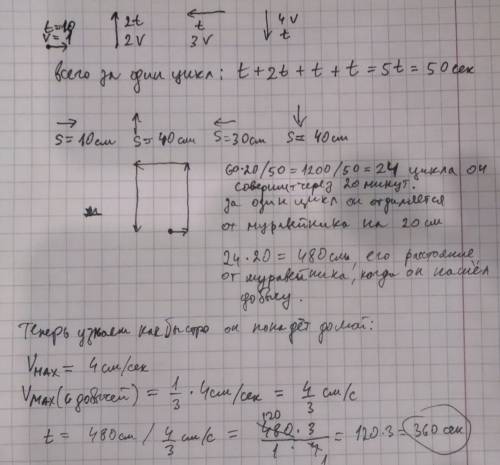 t=10 ↑ 2t ← t ↓ 4V
V=1 → 2V 3V t
всего за один цикл: t + 2t + t + t = 5t = 50 сек
→ ↑ ← ↓
S=10см S=40см S=30см S=40см
60·20/50=1200/50=24 цикла он
совершит через 20 минут.
за один цикл он отдаляется
от муравейника на 20 см
24·20=480см, его расстояние
от муравейника, когда он нашёл
добычу.
Теперь узнаем как быстро он попадёт домой:
Vмах = 4см/сек
Vмах(с добычей) = 1/3 · 4см/сек = 4/3 см/с
t = 480см / 4/3 см/с = 480·3/1·4 = 120·3 = 360 сек
120
1